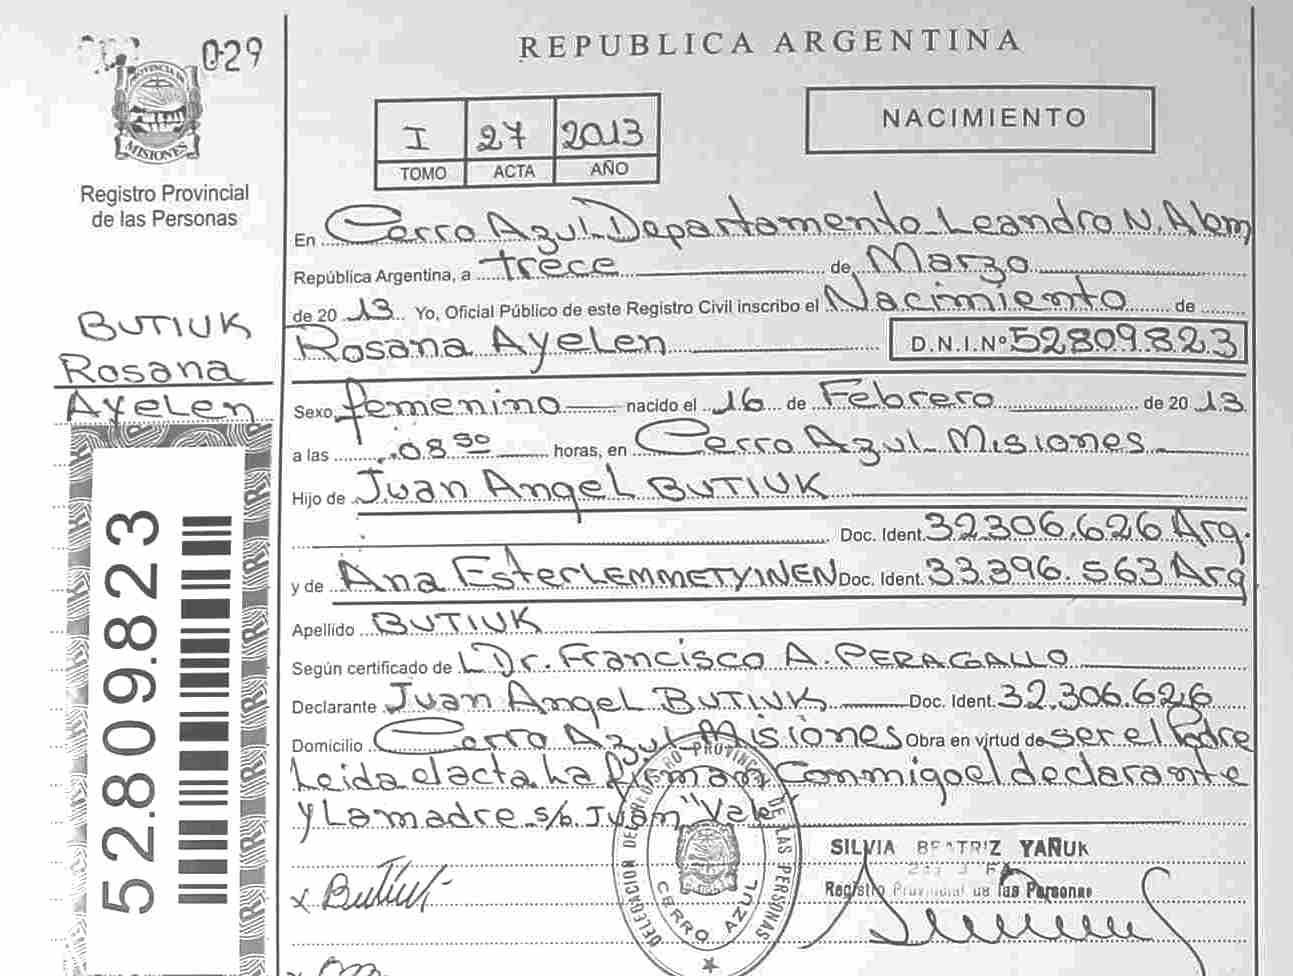 029
PROVINCIA DE
MISIONES
Registro Provincial
de las Personas
BUTIUK
Rosana
Ayelen
52.809.823
REPUBLICA ARGENTINA
I 27 2013
TOMO ACTA AÑO
NACIMIENTO
En Cerro Azul Departamento Leandro N. Alem
República Argentina, a trece de Marzo
de 20 13 Yo, Oficial Público de este Registro Civil inscribo el Nacimiento de
Rosana Ayelen D.N.I.Nº 52809.823
Sexo femenino nacido el 16 de Febrero de 20 13
a las 08 30 horas, en Cerro Azul Misiones
Hijo de Juan Angel BUTIUK
Doc. Ident. 32306.626 Arg.
y de Ana Ester LEMMETYINEN Doc. Ident. 33.396.563 Arg
Apellido BUTIUK
Según certificado de L Dr. Francisco A. PERAGALLO
Declarante Juan Angel BUTIUK Doc. Ident. 32.306.626
Domicilio Cerro Azul Misiones Obra en virtud de ser el Padre
Leida el acta la firman Conmigo el declarante
y La madre s/b Juan "Vale"
DELEGACION DEL REGISTRO PROVINCIAL DE LAS PERSONAS
CERRO AZUL
SILVIA BEATRIZ YAÑUK
Registro Provincial de las Personas
x Butiuk
x